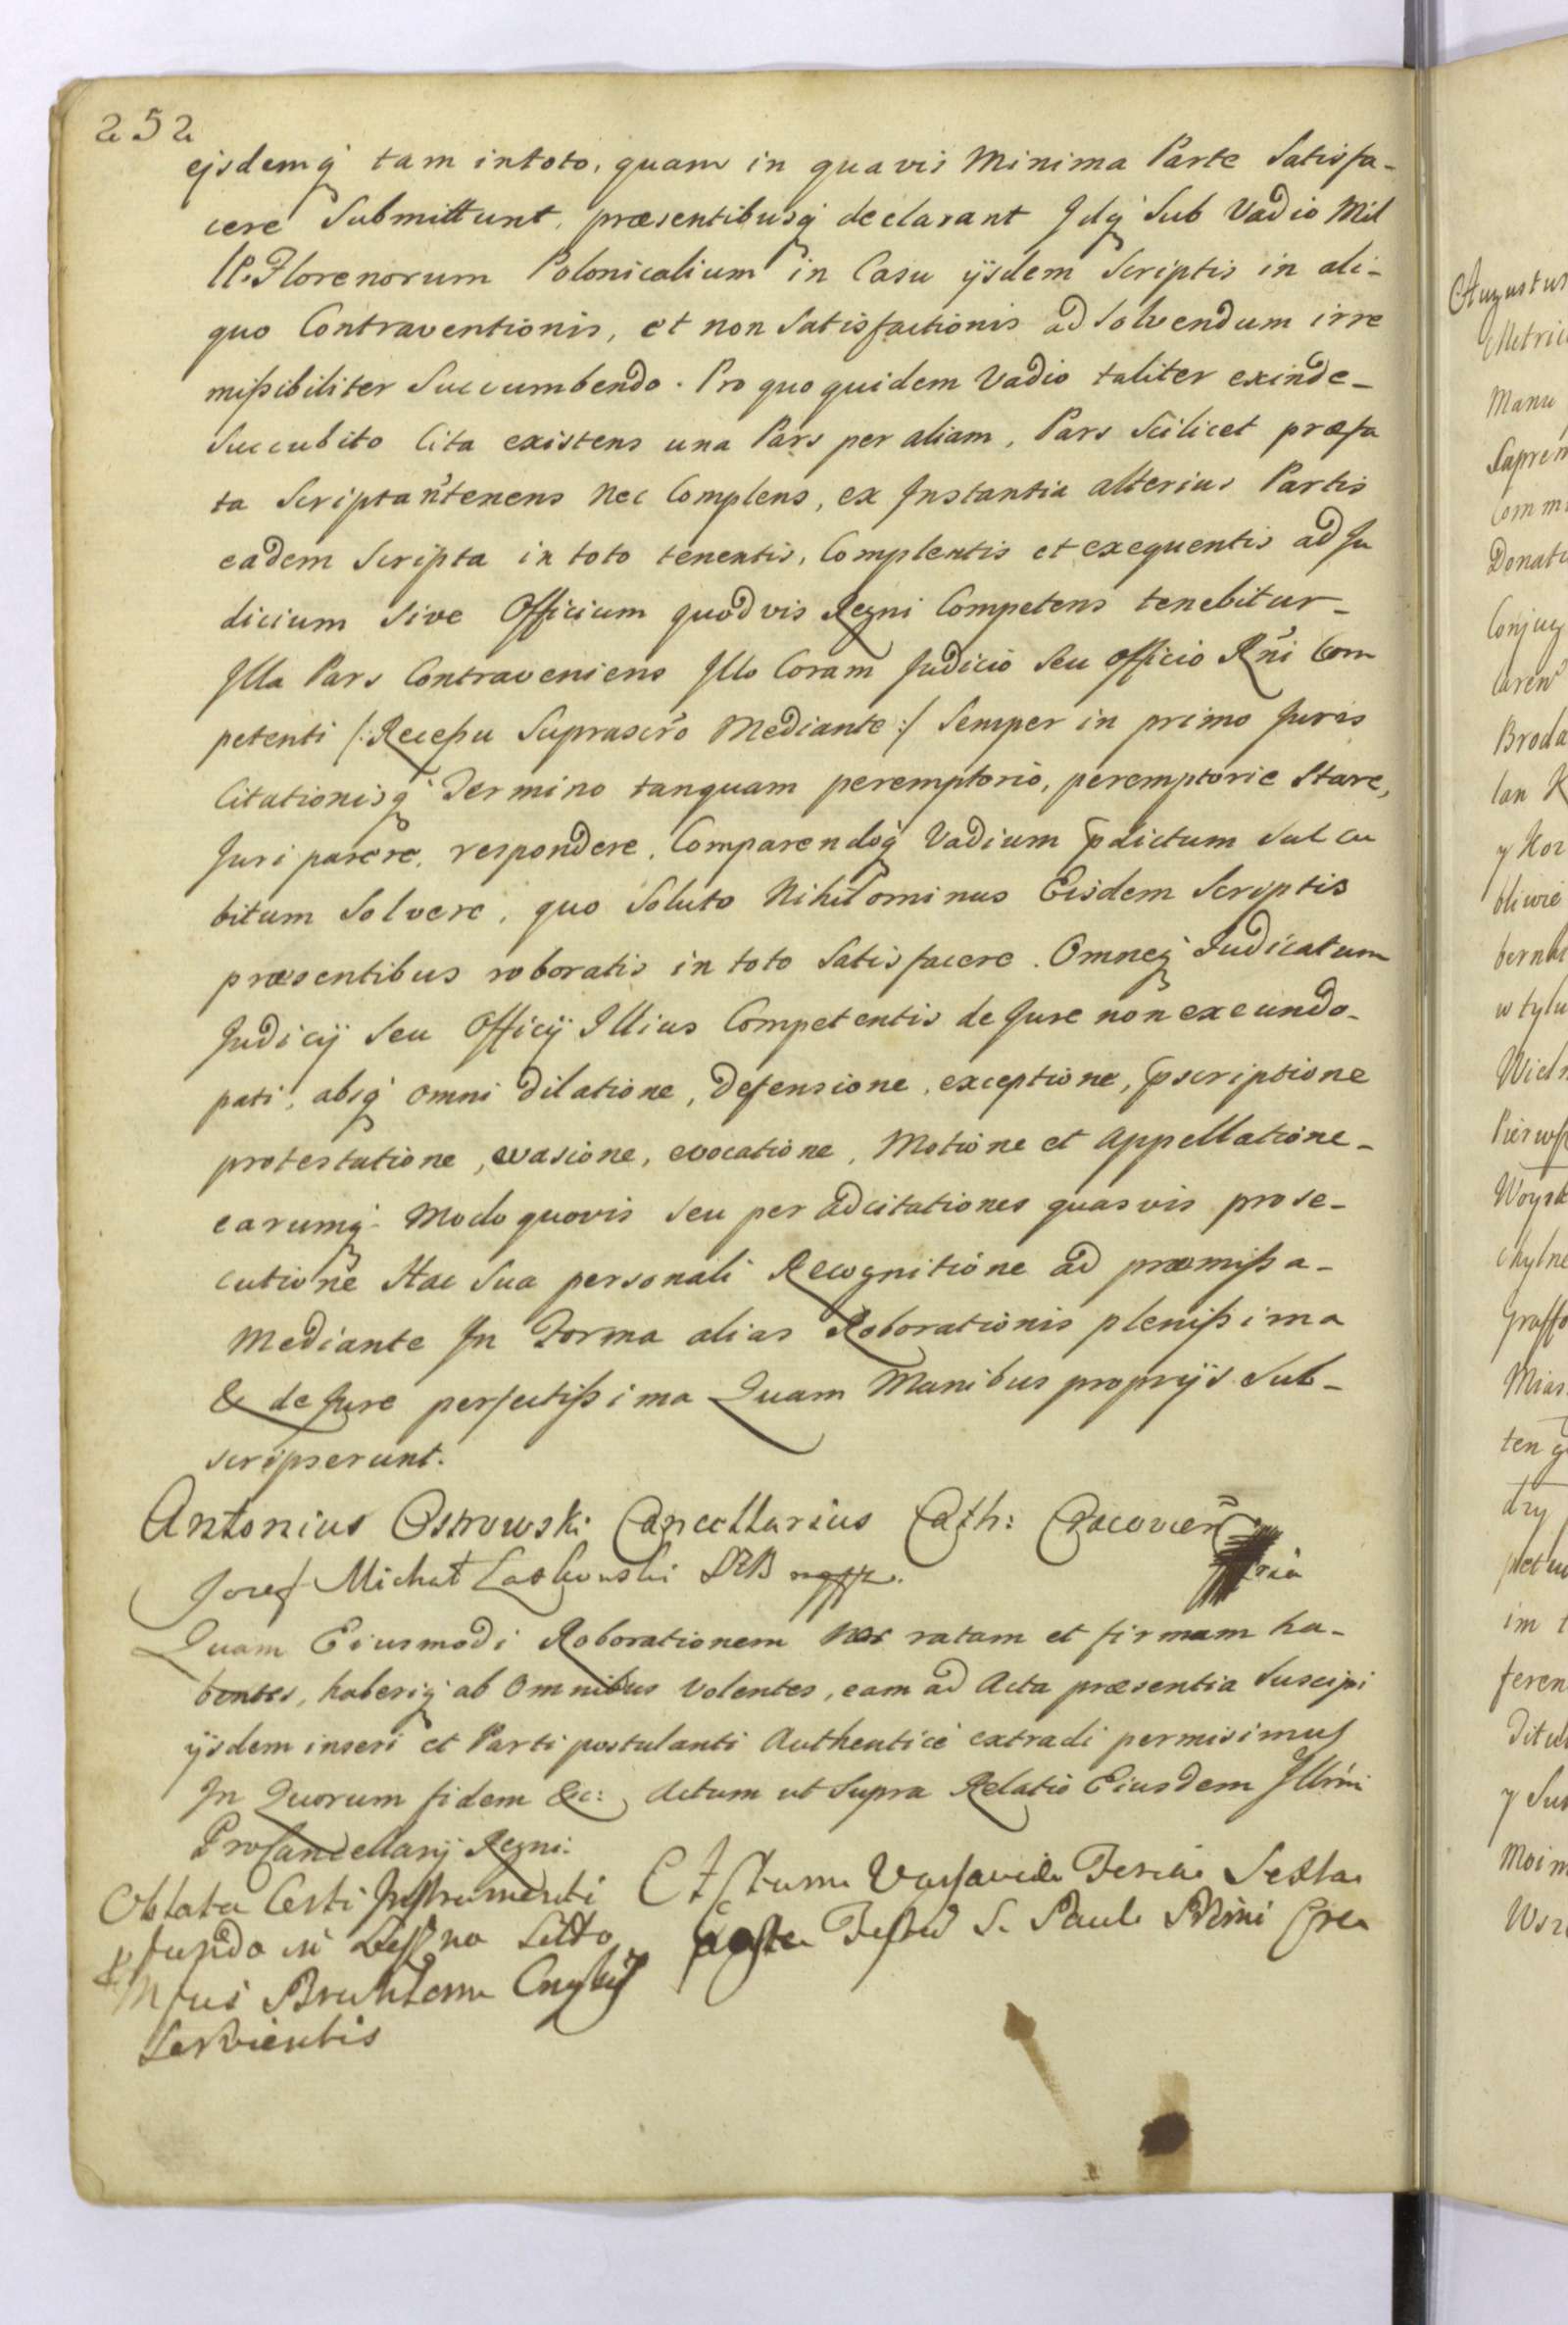 252
ejsdemq́ tam in toto, quam in quavis Minima Parte Satisfa-
cere Submittunt, præsentibusq́ declarant Jdq́ Sub Vadio Mil
lP. Florenorum Polonicalium in Casu ijsdem Scriptis in ali-
quo Contraventionis, et non Satisfactionis ad Solvendum irre
mißibiliter Succumbendo. Pro quo quidem Vadio taliter exinde-
Succubito Cita existens una Pars per aliam, Pars Scilicet præfa
ta Scripta ñ tenens nec Complens, ex Jnstantia alterius Partis
eadem Scripta in toto tenentis, Complentis et exequentis ad Ju
dicium Sive Officium quodvis Regni Competens tenebitur-
Jlla Pars Contraveniens Jllo Coram Judicio Seu officio Rñi Com
petenti /: Receßu Suprascr̃o Mediante :/ Semper in primo Juris
Citationisq́ Termino tanquam peremptorio, peremptorie Stare,
Juri parere, respondere, Comparendoq́ Vadium p̃dictum Suc cu
bitum Solvere, quo Soluto Nihilominus Eisdem Scriptis
præsentibus roboratis in toto Satisfacere. Omneq́ Judicatum
Judicij Seu Officij Illius Competentis de Jure non exeundo-
pati, absq́ omni dilatione, defensione, exceptione, p̃scriptione
protestatione, evasione, evocatione, Motione et appellatione-
earumq́ Modo quovis seu per adcitationes quasvis prose-
cutione Hac Sua personali Recognitione ad præmißa-
Mediante Jn Forma alias Roborationis plenißima
& de Jure perfectißima Quam Manibus proprijs Sub-
scripserunt.
Antonius Ostrowski Cancellarius Cath: Cracovień
Jozef Michał Laskowski mpp.
Quam Eiusmodi Roborationem Nos ratam et firmam ha-
bentes, haberiq́ ab Omnibus Volentes, eam ad Acta præsentia Suscipi
ijsdem inseri et Parti postulanti Authentice extradi permisimus
Jn Quorum fidem &c: Actum ut Supra Relatio Eiusdem Jllr̃mi
ProCancellarij Regni.
Oblata Certi Jnstrumenti
fundo in
Servientis
Actum Varsaviæ Feria Sexta
post Festum S. Pauli Primi Ere